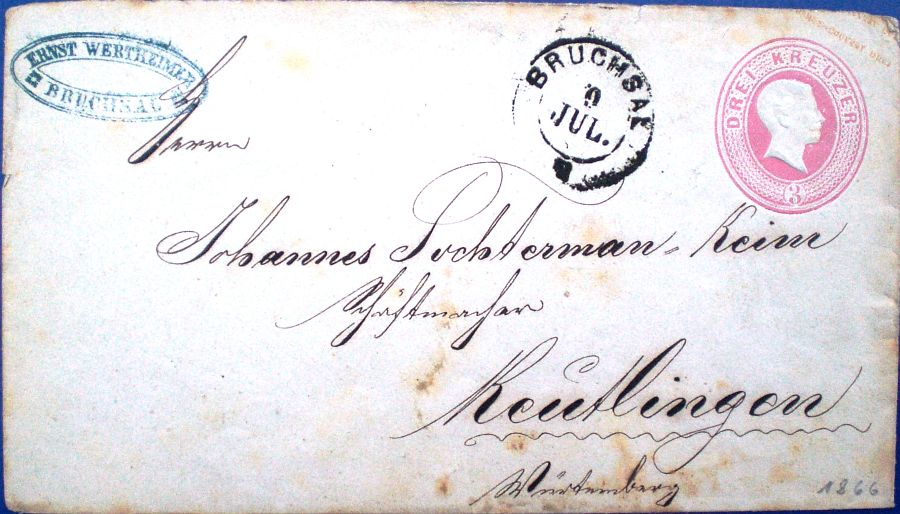 ERNST WERTHEIMER
BRUCHSAL
BRUCHSAL
9
JUL.
DREI KREUZER
3
Herrn
Johannes Tochterman-Keim
Schäftmacher
Reutlingen
Würtemberg
1866